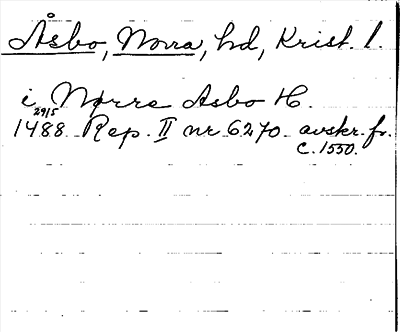 Åsbo, Norra, hd, Krist. l.
i Nørre Asbo H.
29/5
1488 Rep. II nr 6270 avskr. fr.
c. 1550.